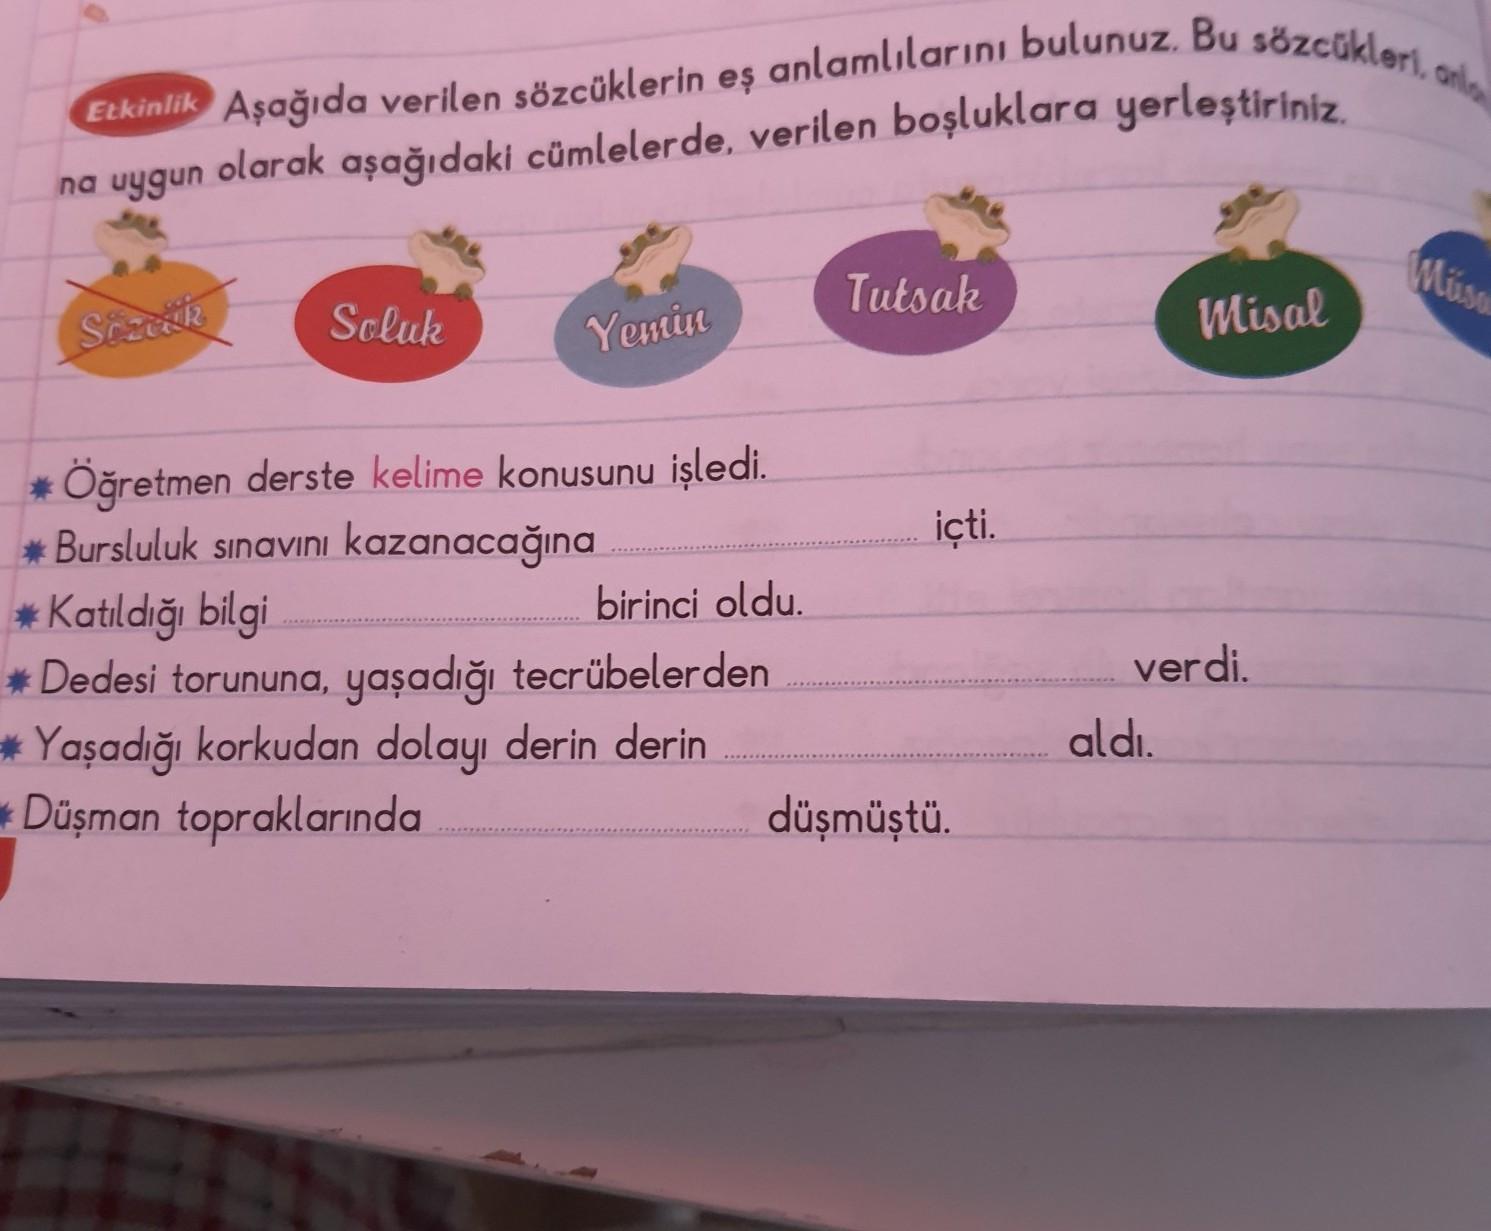 Etkinlik Aşağıda verilen sözcüklerin eş anlamlılarını bulunuz. Bu sözcükleri,
na uygun olarak aşağıdaki cümlelerde, verilen boşluklara yerleştiriniz.
Sözcük Soluk Yemin Tutsak Misal
Öğretmen derste kelime konusunu işledi.
Bursluluk sınavını kazanacağına ........ içti.
Katıldığı bilgi ........ birinci oldu.
Dedesi torununa, yaşadığı tecrübelerden ........ verdi.
Yaşadığı korkudan dolayı derin derin ........ aldı.
Düşman topraklarında ........ düşmüştü.